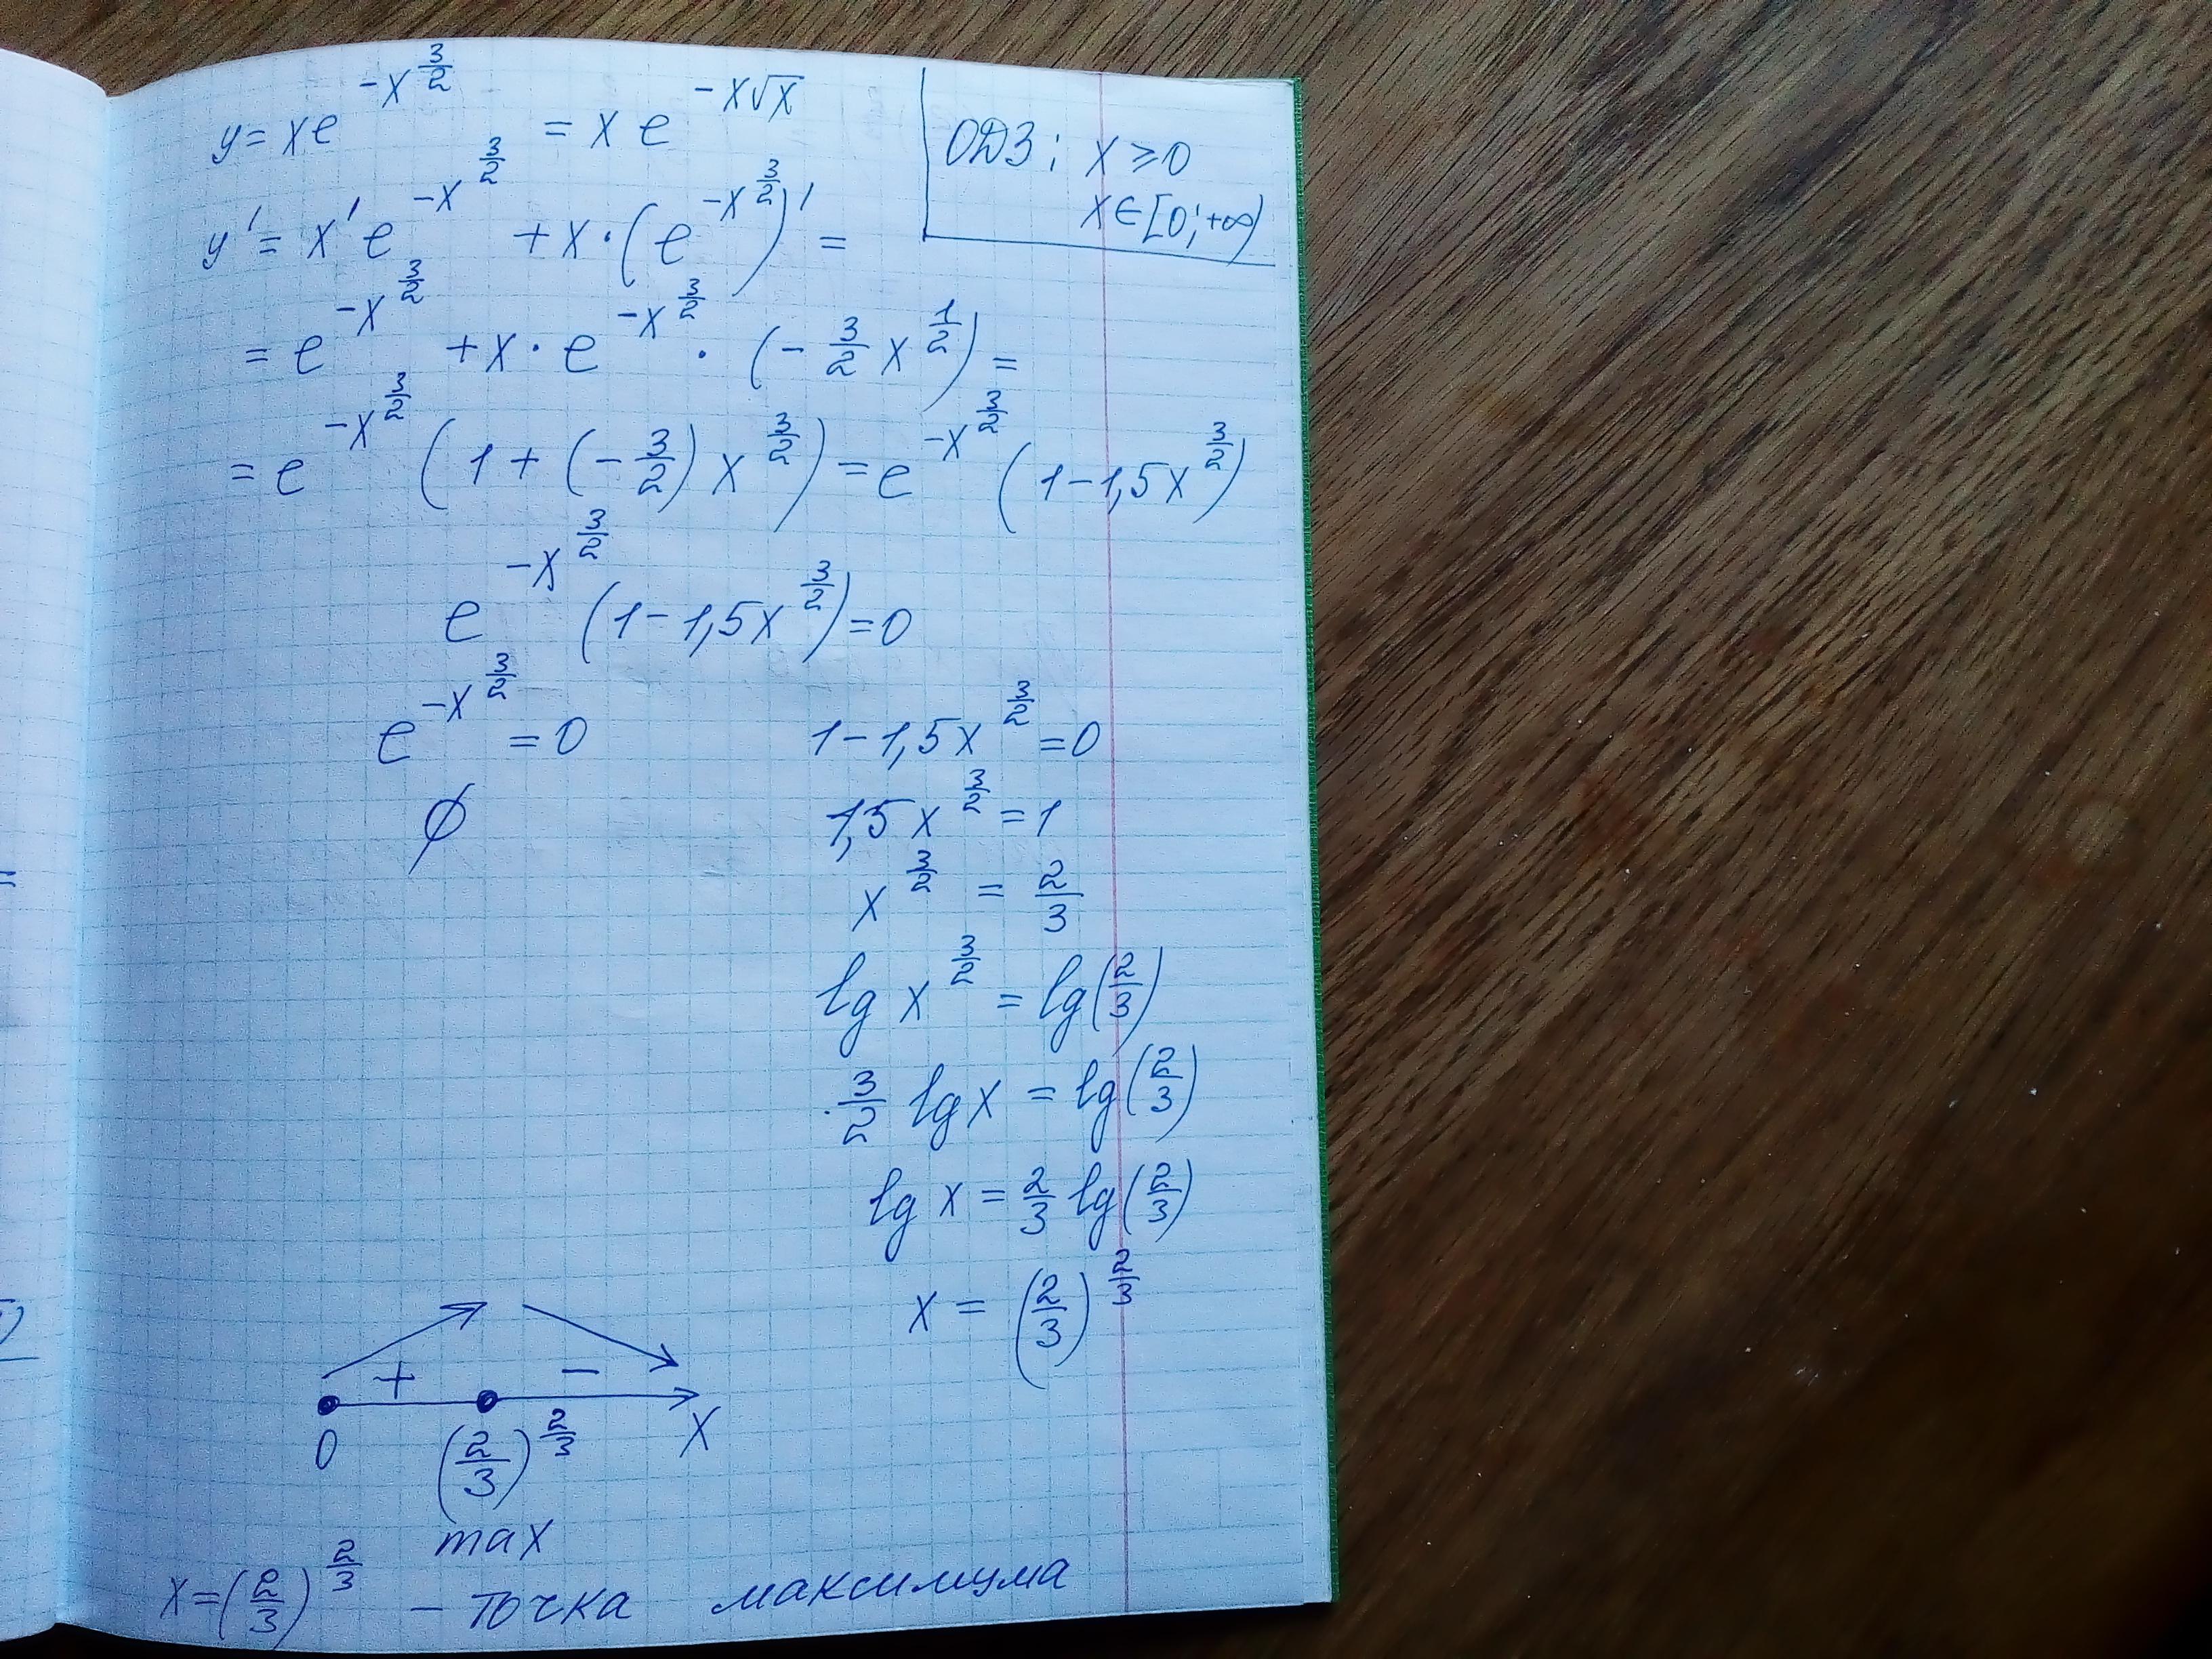 y = xe^{-x^{3/2}} = xe^{-x√x}
ОДЗ: x ⩾ 0
x ∈ [0; +∞)
y' = x'e^{-x^{3/2}} + x·(e^{-x^{3/2}})' =
= e^{-x^{3/2}} + x·e^{-x^{3/2}}·(-3/2 x^{1/2}) =
= e^{-x^{3/2}} (1 + (-3/2) x^{3/2}) = e^{-x^{3/2}} (1 - 1,5x^{3/2})
e^{-x^{3/2}} (1 - 1,5x^{3/2}) = 0
e^{-x^{3/2}} = 0
∅
1 - 1,5x^{3/2} = 0
1,5x^{3/2} = 1
x^{3/2} = 2/3
lg x^{3/2} = lg(2/3)
3/2 lg x = lg(2/3)
lg x = 2/3 lg(2/3)
x = (2/3)^{2/3}
+ −
0 (2/3)^{2/3} x
max
x = (2/3)^{2/3} - точка максимума